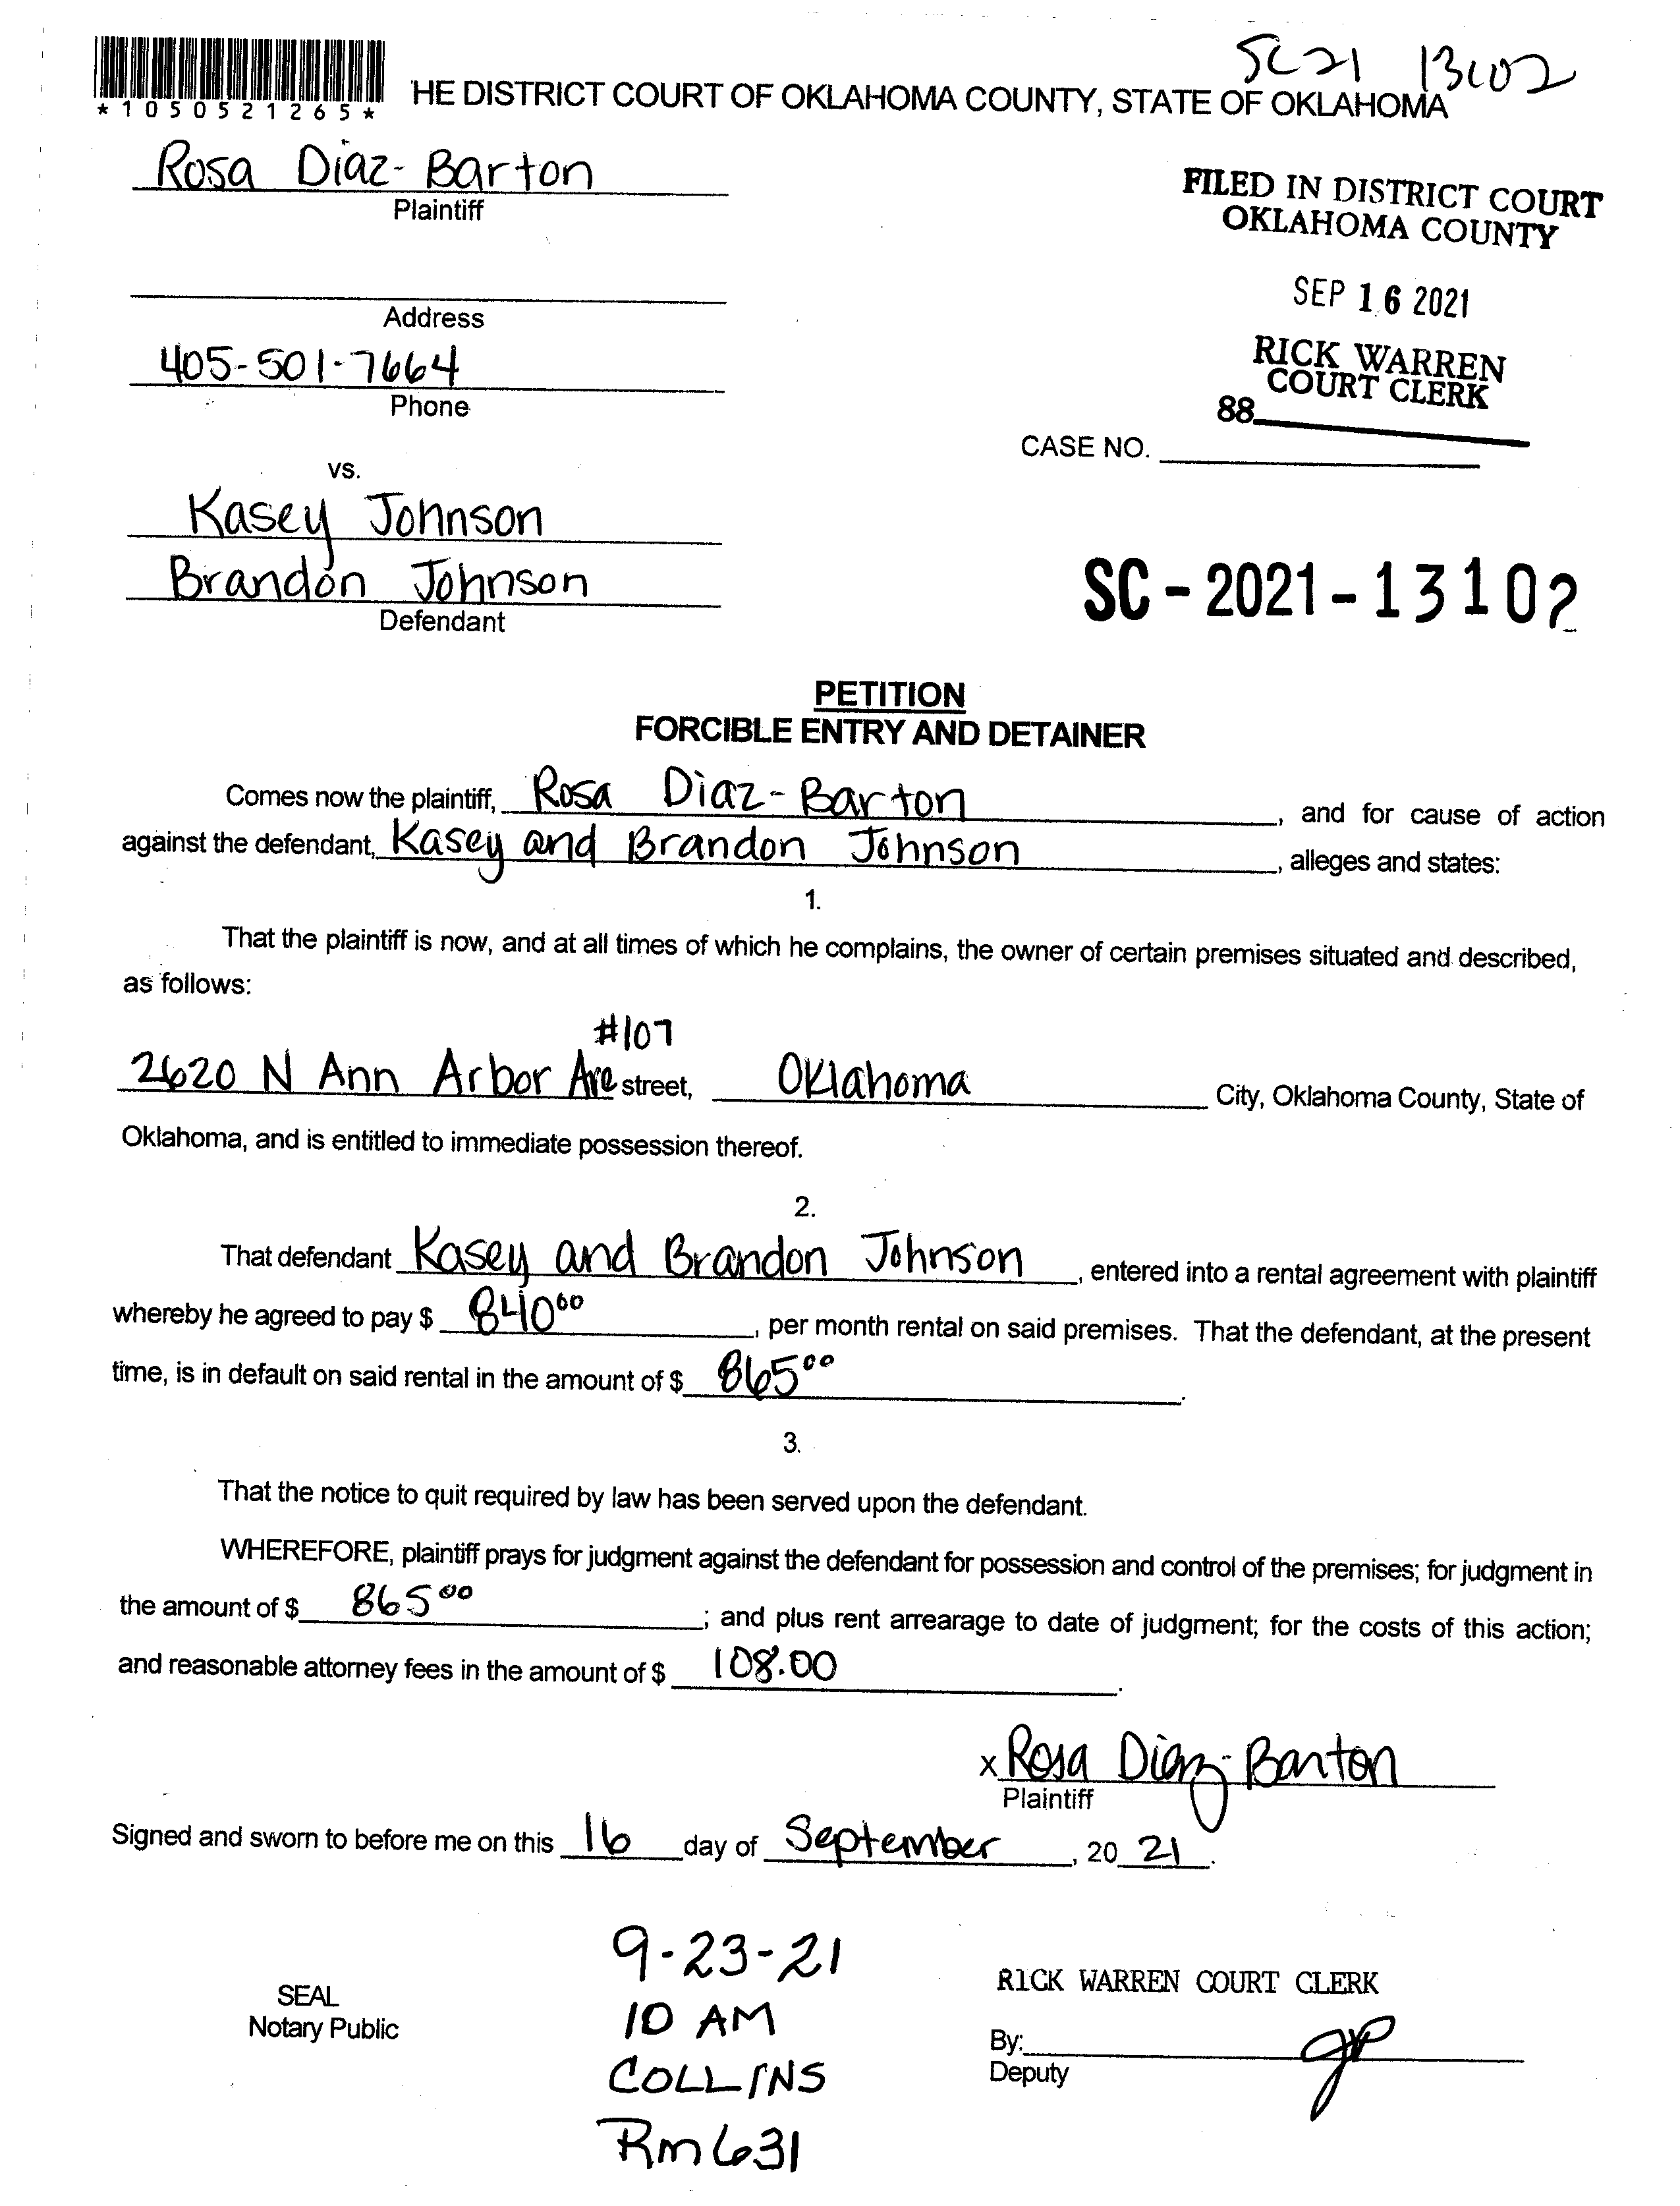 SC21 13102
*1050521265*
HE DISTRICT COURT OF OKLAHOMA COUNTY, STATE OF OKLAHOMA
Rosa Diaz-Barton
Plaintiff
FILED IN DISTRICT COURT
OKLAHOMA COUNTY
Address
SEP 16 2021
405-501-7664
Phone
RICK WARREN
COURT CLERK
88
CASE NO.
vs.
Kasey Johnson
Brandon Johnson
Defendant
SC-2021-13102
PETITION
FORCIBLE ENTRY AND DETAINER
Comes now the plaintiff, Rosa Diaz-Barton, and for cause of action
against the defendant, Kasey and Brandon Johnson, alleges and states:
1.
That the plaintiff is now, and at all times of which he complains, the owner of certain premises situated and described,
as follows:
#107
2620 N Ann Arbor Ave street, Oklahoma City, Oklahoma County, State of
Oklahoma, and is entitled to immediate possession thereof.
2.
That defendant Kasey and Brandon Johnson, entered into a rental agreement with plaintiff
whereby he agreed to pay $ 840 00, per month rental on said premises. That the defendant, at the present
time, is in default on said rental in the amount of $ 865 00.
3.
That the notice to quit required by law has been served upon the defendant.
WHEREFORE, plaintiff prays for judgment against the defendant for possession and control of the premises; for judgment in
the amount of $ 865 00; and plus rent arrearage to date of judgment; for the costs of this action;
and reasonable attorney fees in the amount of $ 108.00.
x Rosa Diaz-Barton
Plaintiff
Signed and sworn to before me on this 16 day of September, 20 21.
9-23-21
10 AM
COLLINS
Rm 631
SEAL
Notary Public
RICK WARREN COURT CLERK
By:
Deputy